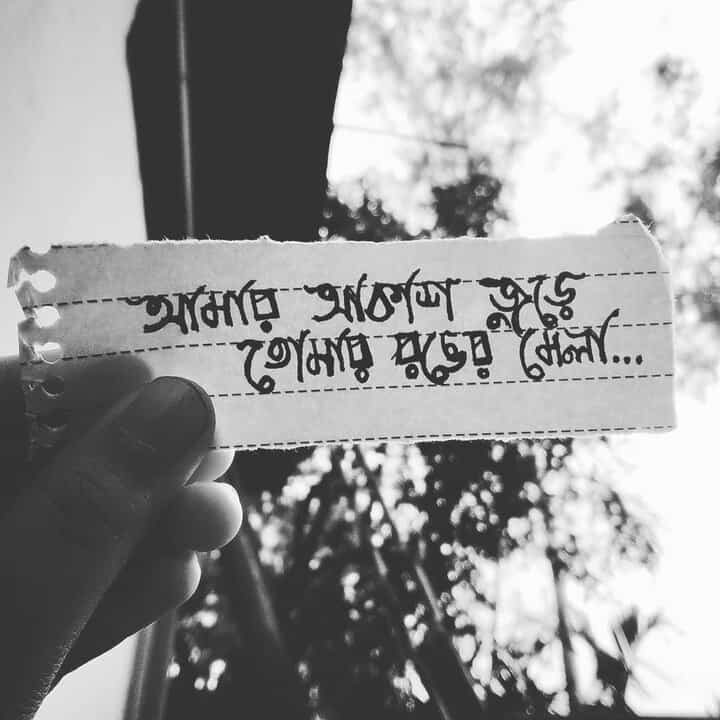 আমার আকাশ জুড়ে
তোমার রঙের মেলা...